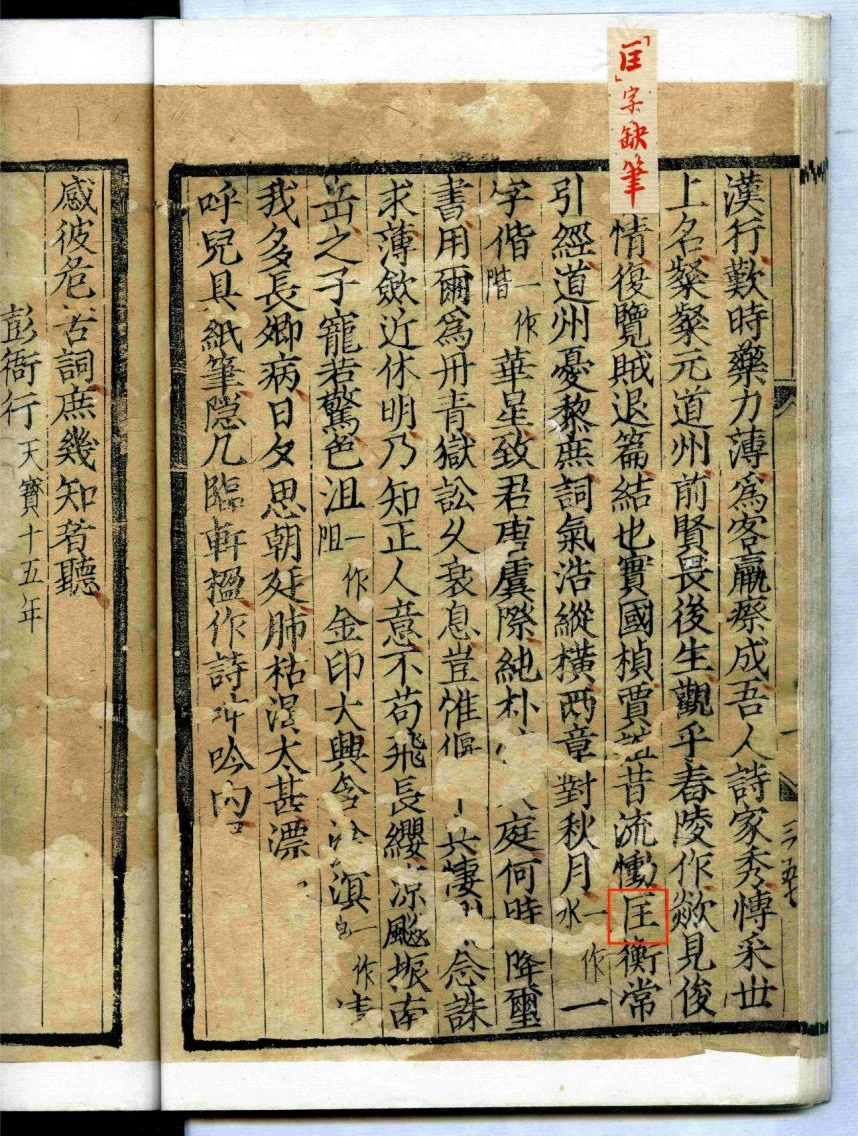 「匡」字缺筆
漢行歎時藥力薄爲客羸瘵成吾人詩家秀愽采世
上名粲粲元道州前賢畏後生觀乎舂陵作歘見俊
情復覽賊退篇結也實國楨賈誼昔流慟匡衡常
引經道州憂黎庶詞氣浩縱橫兩章對秋月一作水一
字偕一作階華星致君唐虞際純朴庭何時降璽
書用爾爲丹青獄訟久衰息豈惟偃悽念誅
求薄歛近休明乃知正人意不苟飛長纓凉飈振南
岳之子寵若驚色沮一作阻金印大興含溟一作
我多長卿病日夕思朝廷肺枯渴太甚漂
呼兒具紙筆隠几臨軒楹作詩吟内
感彼危苦詞庶幾知者聽
彭衙行天寳十五年